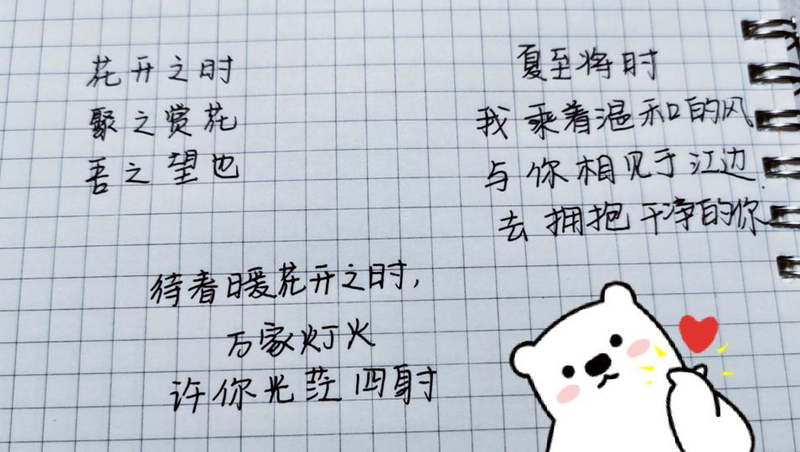 花开之时
聚之赏花
吾之望也
夏至将时
我乘着温和的风
与你相见于江边.
去拥抱干净的你
待春暖花开之时,
万家灯火
许你光芒四射